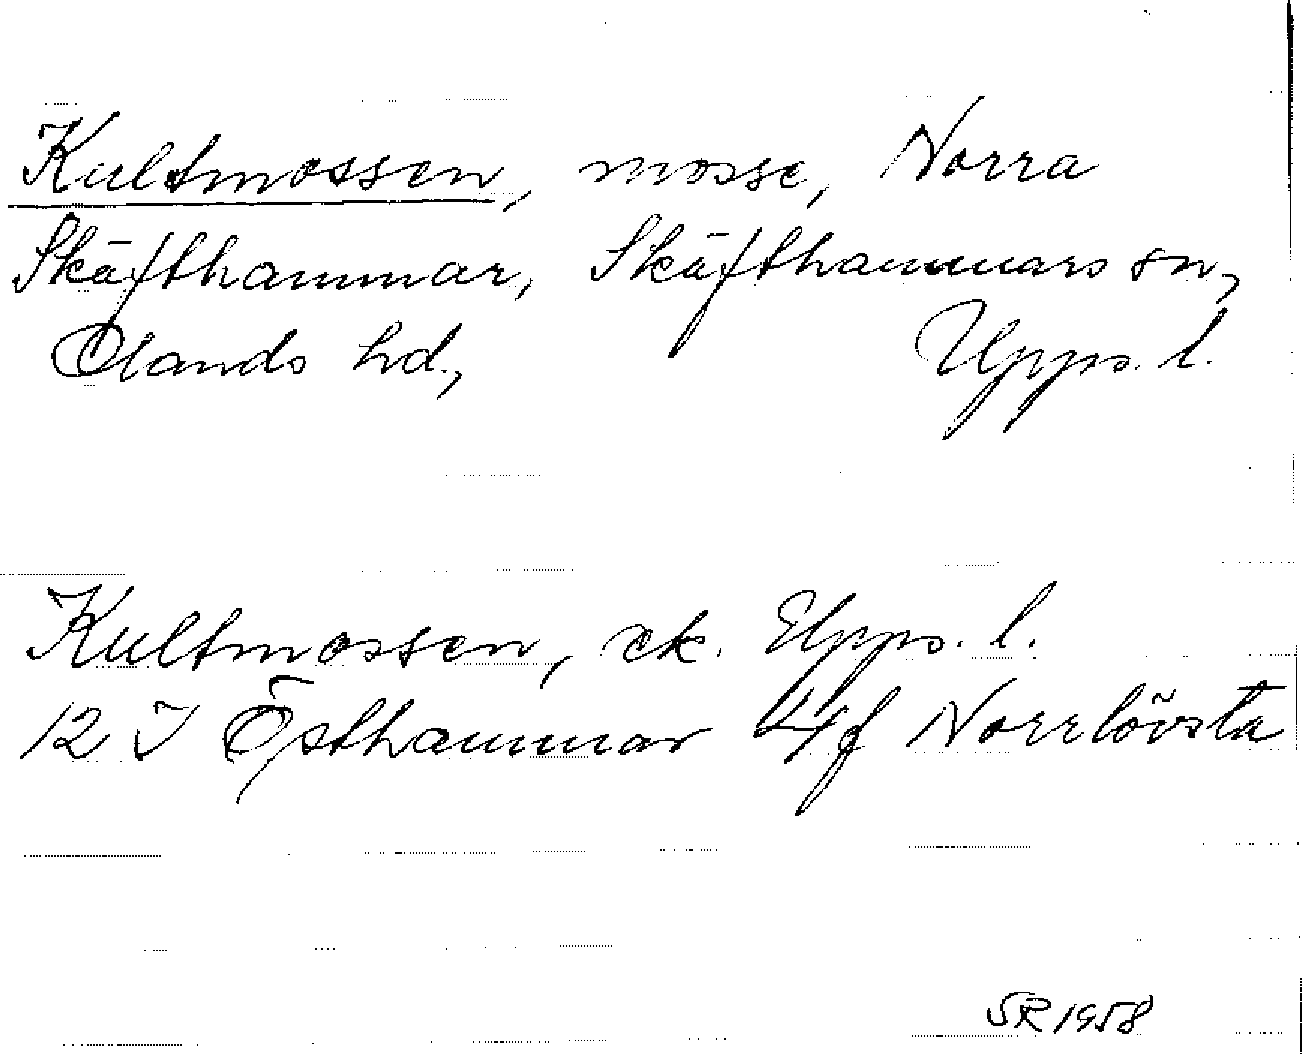 Kultmossen, mosse, Norra
Skäfthammar, Skäfthammars sn,
Olands hd., Upps. l.
Kultmossen, ek. Upps. l.
12 I Östhammar 4f Norrlövsta
SR 1958